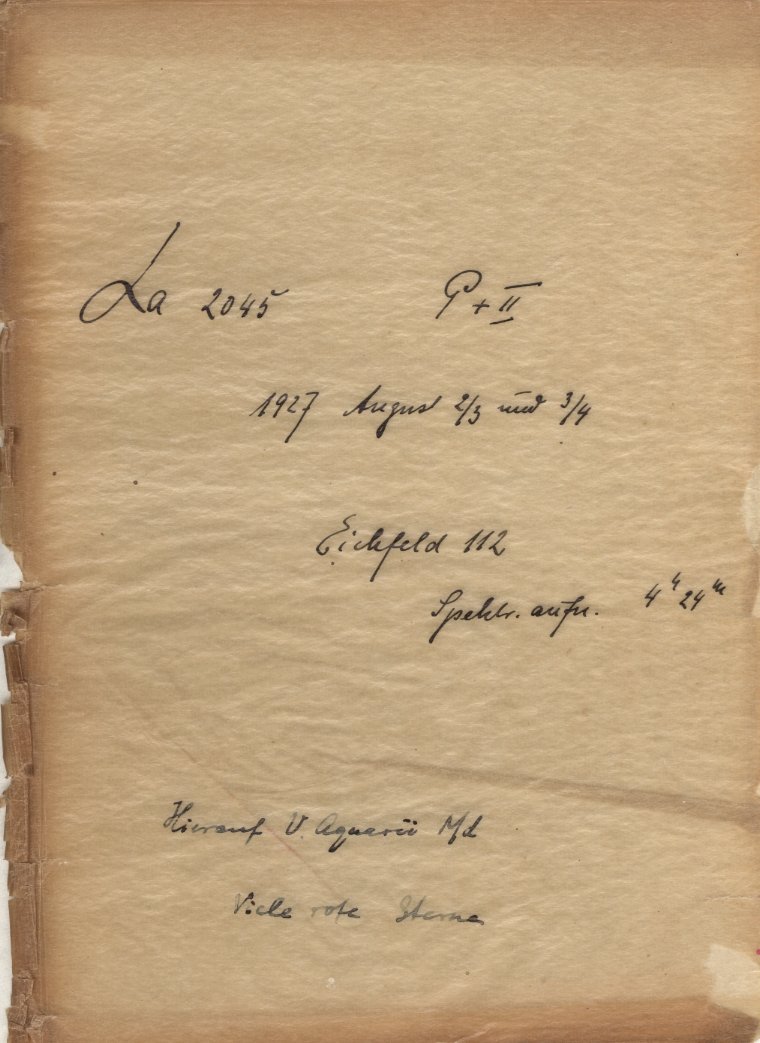 La 2045 P + II
1927 August 2/3 und 3/4
Eichfeld 112
Spektr. aufn. 4h 24m
Hierauf V Aquarii Md
Viele rote Sterne